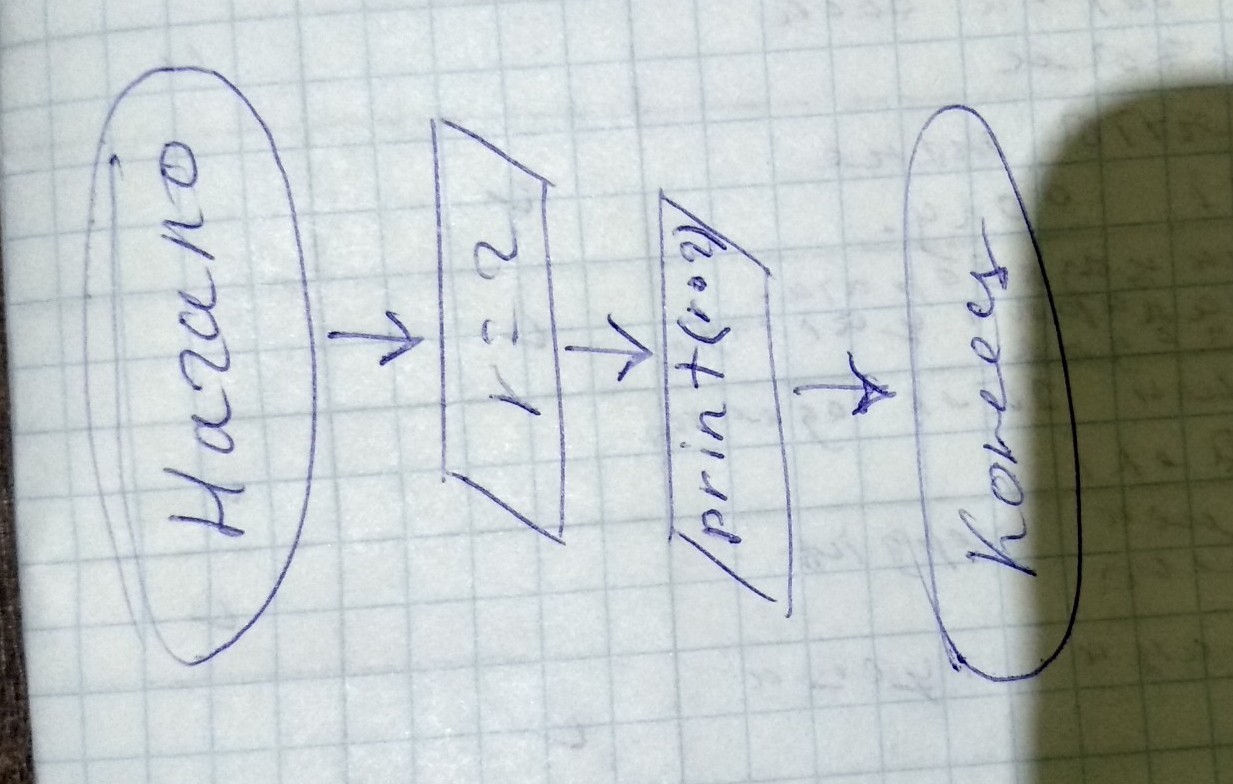 Начало
r = 2
print(r*2)
Конец